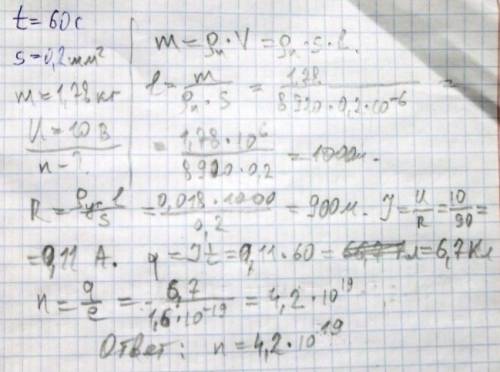 t=60c
s=0,2мм²
m=1,78кг
U=10В
n-?
m=ρп·V=ρп·s·l.
l=m/(ρп·s)=1,78/(8920·0,2·10⁻⁶)=
=1,78·10⁶/(8920·0,2)=1000м.
R=ρуд·l/s=0,018·1000/0,2=90Ом. J=U/R=10/90=
=0,11 А. q=Jt=0,11·60=6,7Кл
n=q/e=6,7/(1,6·10⁻¹⁹)=4,2·10¹⁹
Ответ: n=4,2·10¹⁹